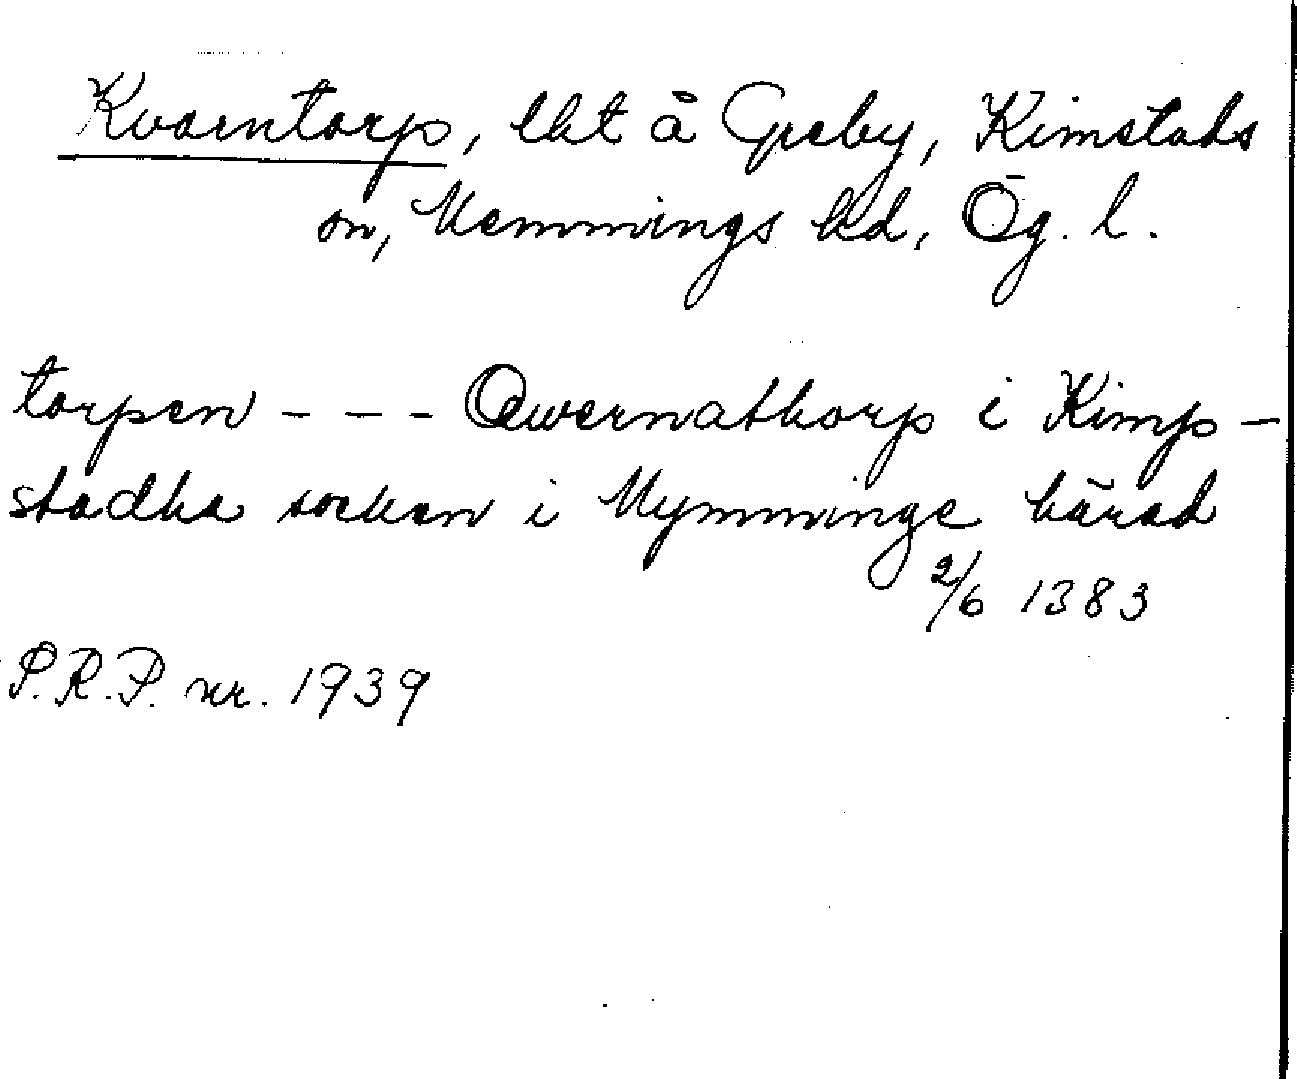 Kvarntorp, lht å Greby, Kimstads
sn, Memmings hd, Ög. l.
torpen - - - Qwernathorp i Kimp-
stadha socken i Mymminge härad
2/6 1383
S.R.P. nr. 1939